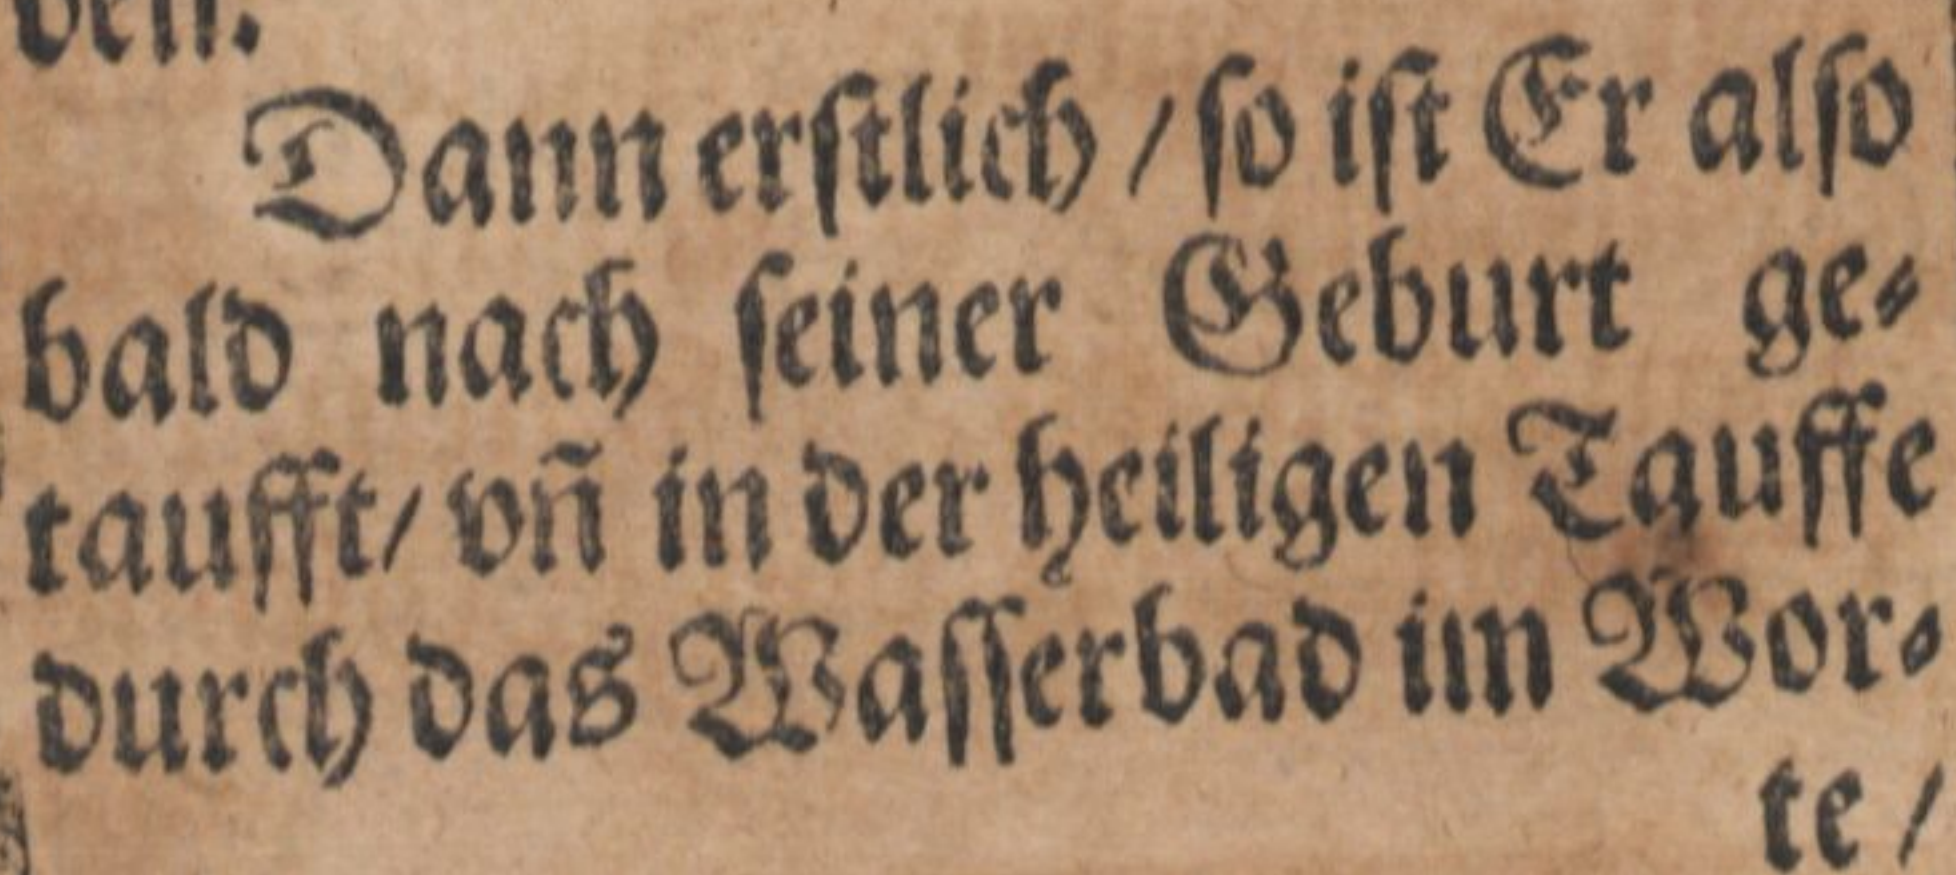 Dann erſtlich / ſo iſt Er alſo
bald nach ſeiner Geburt ge⸗
taufft / vñ in der heiligen Tauffe
durch das Waſſerbad im Wor⸗
te /